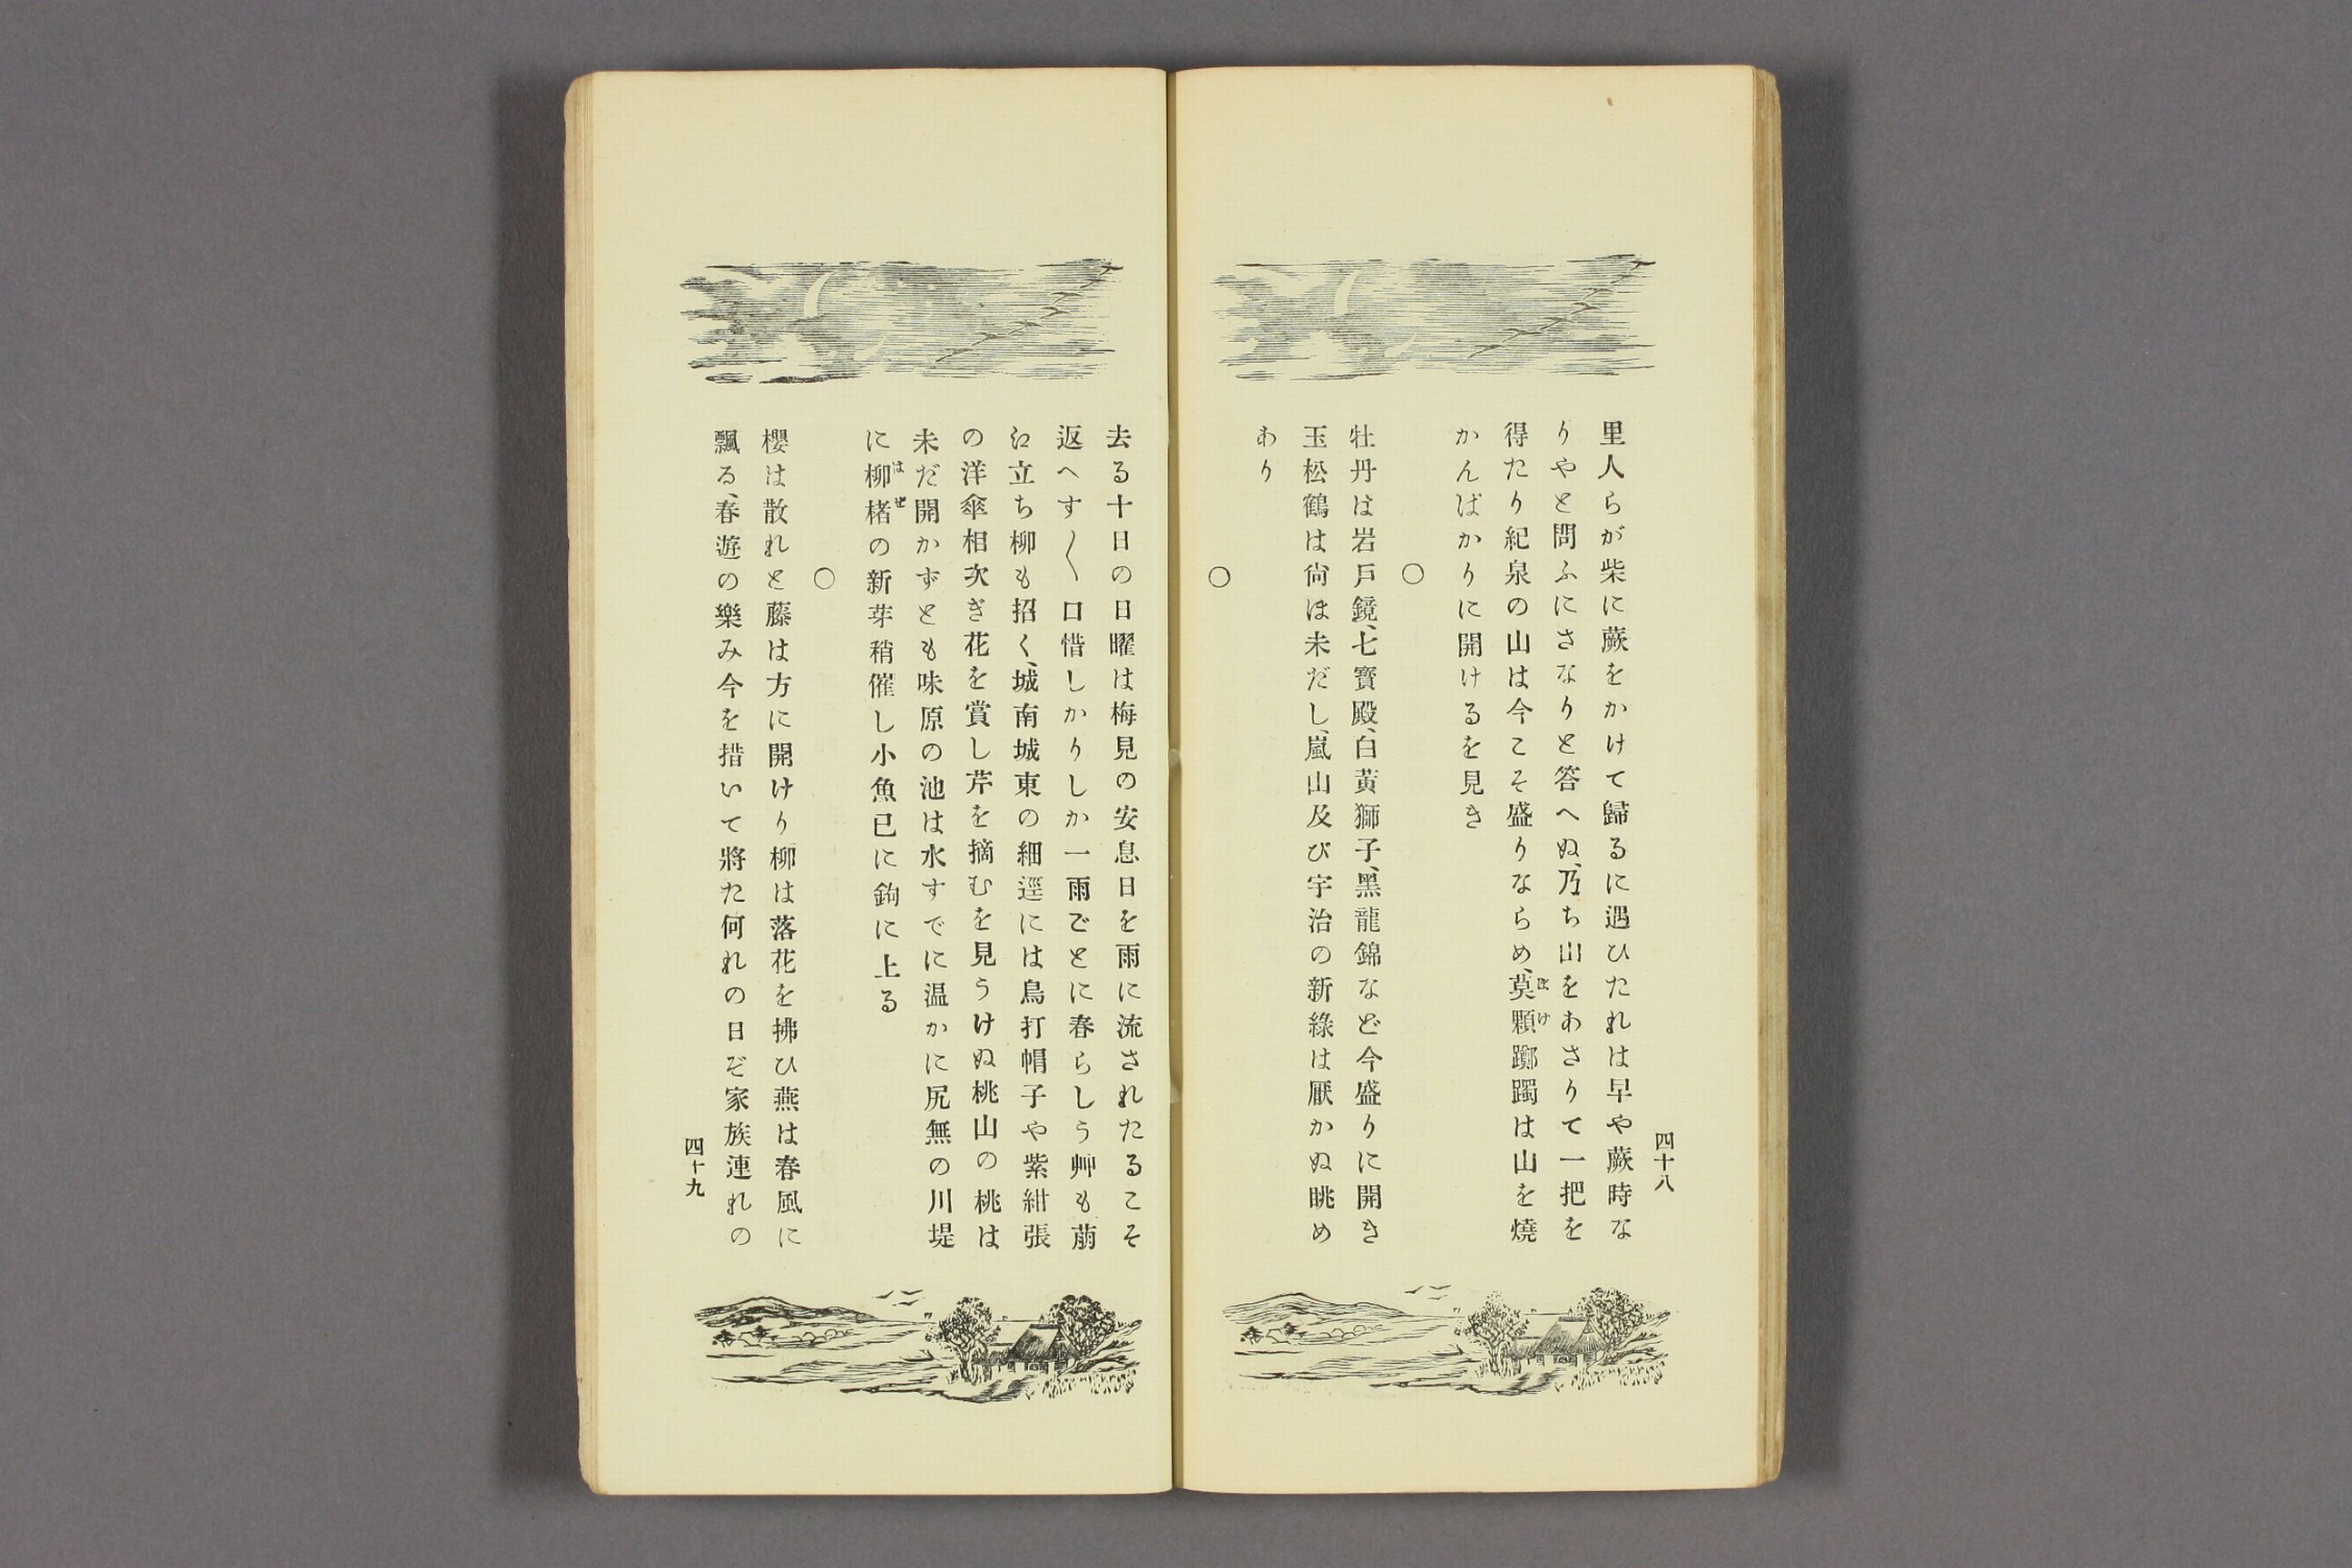 四十八
里人らが柴に蕨をかけて歸るに遇ひたれは早や蕨時な
りやと問ふにさなりと答へぬ、乃ち山をあさりて一把を
得たり紀泉の山は今こそ盛りならめ、莫顆躑躅は山を燒
ぼけ
かんばかりに開けるを見き
○
牡丹は岩戸鏡、七寶殿、白黃獅子、黑龍錦など今盛りに開き
玉松鶴は尙ほ未だし、嵐山及び宇治の新綠は厭かぬ眺め
あり
○
去る十日の日曜は梅見の安息日を雨に流されたるこそ
返へす〱口惜しかりしか一雨ごとに春らしう艸も萠
え立ち柳も招く、城南城東の細逕には鳥打帽子や紫紺張
の洋傘相次ぎ花を賞し芹を摘むを見うけぬ桃山の桃は
未だ開かずとも味原の池は水すでに温かに尻無の川堤
に柳楮の新芽稍催し小魚已に鉤に上る
はぜ
○
櫻は散れと藤は方に開けり柳は落花を拂ひ燕は春風に
飄る、春遊の樂み今を措いて將た何れの日ぞ家族連れの
四十九